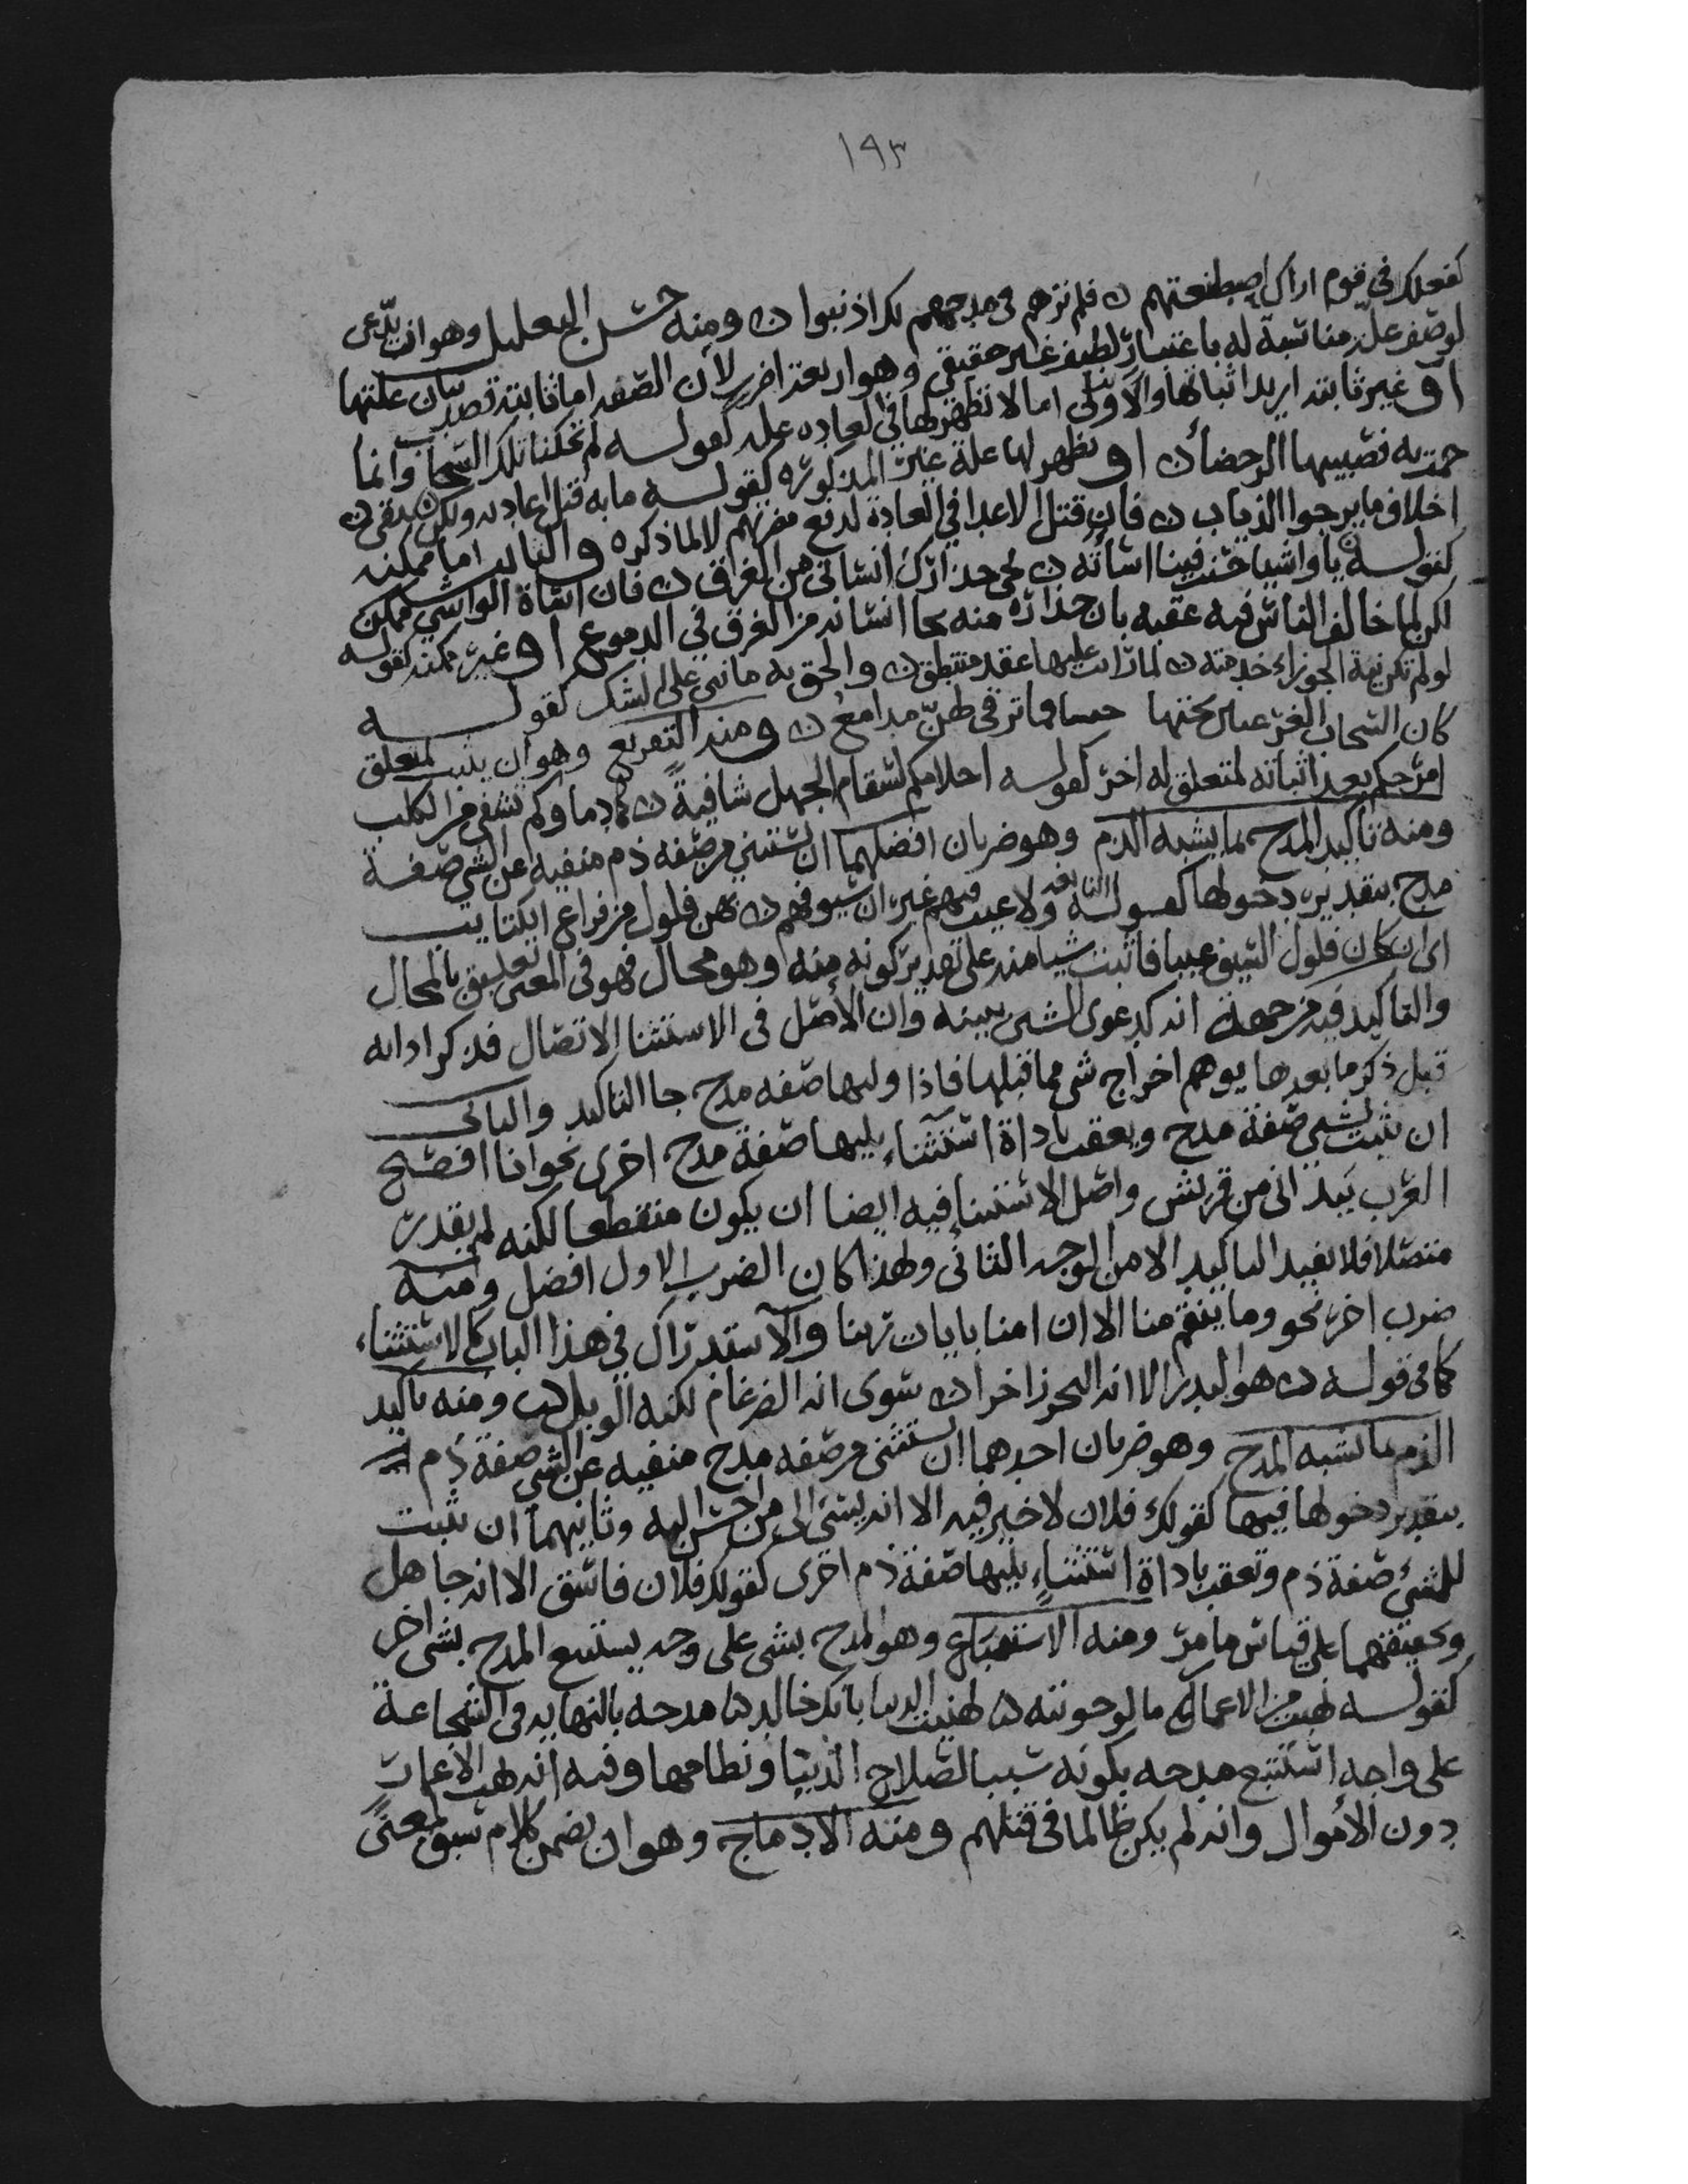 ١٩٣
كفعلك في قوم اراك اصطنعتهم ں فلم ترهم في مدحهم لك اذنبوا ں ومنه حسن التعليل وهو ان يدّعى
لوصف علة مناسبة له باعتبار لطيف غير حقيقي وهو اربعة اضرب لان الصفه اما ثابته قصد بيان علتها
او غير ثابته اريد اثباتها والاولى اما لا تظهر لها في العاده عله كقوله لم تحك نائلك السحاب وانما
حمت به فصبيبها الرحضاء ں او تظهر لها علة غير المذكوره كقوله ما به قتل اعاديه ولكن يتقي ں
اخلاف ما يرجوا الذياب ں فان قتل الاعدا في العادة لدفع مضرتهم لا لما ذكره والثانيه اما ممكنه
كقوله يا واشيا حسنت فينا اساته ں نجى حذارك انساني من الغرق ں فان اساة الواشي ممكن
لكن لما خالف الناس فيه عقبه بان حذاره منه نجا انسانه من الغرق في الدموع او غير ممكنه كقوله
لو لم تكن نية الجوزاء خدمته ں لما رايت عليها عقد منتطق ں والحق به ما بني على الشك كقوله
كان السحاب الغر غيبن تحتها حبيبا فما ترقى لهن مدامع ں ومنه التفريع وهو ان يثبت لمتعلق
امر حكم بعد اثباته لمتعلق له اخر كقوله احلامكم لسقام الجهل شافية ں كما دماوكم تشفى من الكلب
ومنه تاكيد المدح بما يشبه الذم وهو ضربان افضلهما ان يستثنى من صفه ذم منفيه عن الشي صفة
مدح بتقدير دخولها كقوله النابغه ولا عيب فيهم غير ان سيوفهم ں بهن فلول من قراع الكتايب
اى ان كان فلول السيف عيبا فاثبت شيا منه على تقدير كونه منه وهو محال فهو في المعنى تعليق بالمحال
والتاكيد فيه من جهة انه كدعوى الشي ببينه وان الاصل في الاستثنا الاتصال فذكر اداته
قبل ذكر ما بعدها يوهم اخراج شي مما قبلها فاذا وليها صفه مدح جا التاكيد والثاني
ان يثبت لشي صفة مدح ويعقب باداة استثناء يليها صفة مدح اخرى نحو انا افصح
العرب بيد اني من قريش واصل الاستثنا فيه ايضا ان يكون منقطعا لكنه لم يقدر
متصلا فلا يفيد التاكيد الا من الوجه الثاني ولهذا كان الضرب الاول افضل ومنه
ضرب اخر نحو وما ينقم منا الا ان امنا بايات ربنا والاستدراك في هذا الباب كالاستثناء
كما في قوله ں هو البدر الا انه البحر زاخرا ں سوى انه الضرغام لكنه الوبل ں ومنه تاكيد
الذم بما يشبه المدح وهو ضربان احدهما ان يستثنى من صفه مدح منفيه عن الشي صفة ذم له
بتقدير دخولها فيها كقولك فلان لا خير فيه الا انه يسي الى من احسن اليه وثانيهما ان يثبت
للشئ صفة ذم وتعقب باداة استثناء يليها صفة ذم اخرى كقولك فلان فاسق الا انه جاهل
وتحقيقهما على قياس ما مر ومنه الاستتباع وهو المدح بشي على وجه يستتبع المدح بشي اخر
كقوله نهبت من الاعمار ما لو حويته ں لهنيت الدنيا بانك خالد ں مدحه بالنهايه في الشجاعة
على وجه استتبع مدحه بكونه سببا لصلاح الدنيا ونظامها وفيه انه نهب الاعمار
دون الاموال وانه لم يكن ظالما في قتلهم ومنه الادماج وهو ان يضمن كلام سيق لمعنى